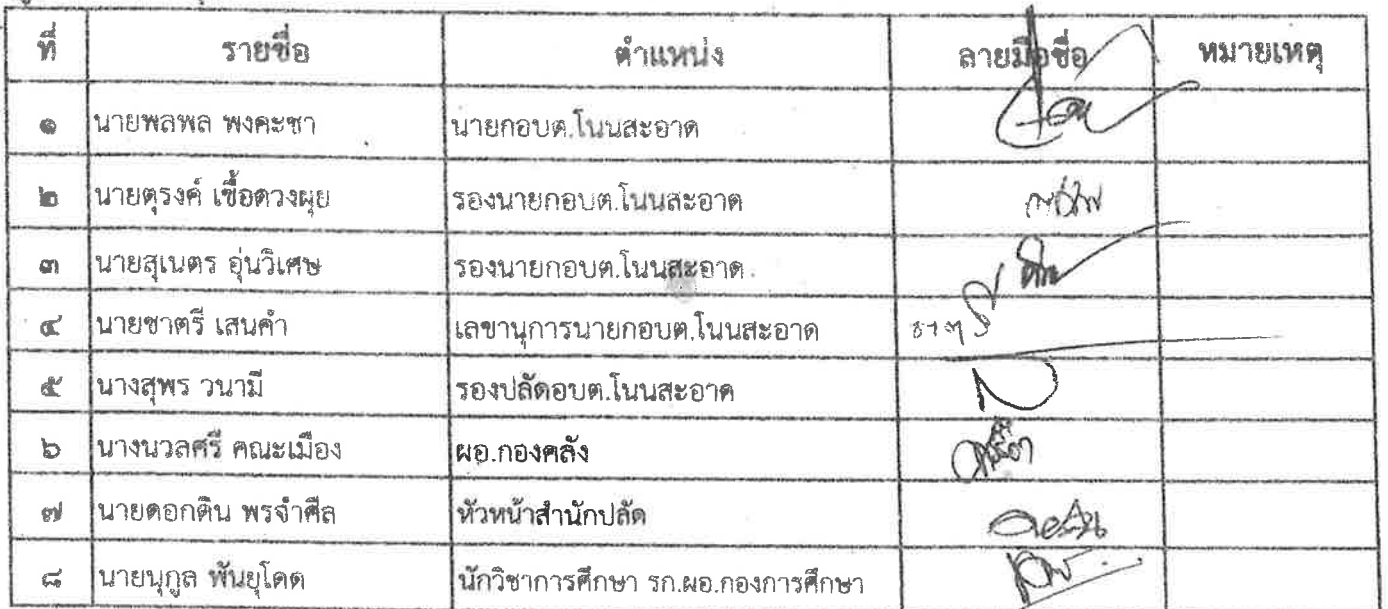 ที่ รายชื่อ ตำแหน่ง ลายมือชื่อ หมายเหตุ
๑ นายพลพล พงคะชา นายกอบต.โนนสะอาด
๒ นายดุรงค์ เชื้อดวงผุย รองนายกอบต.โนนสะอาด
๓ นายสุเนตร อุ่นวิเศษ รองนายกอบต.โนนสะอาด
๔ นายชาตรี เสนคำ เลขานุการนายกอบต.โนนสะอาด
๕ นางสุพร วนามี รองปลัดอบต.โนนสะอาด
๖ นางนวลศรี คณะเมือง ผอ.กองคลัง
๗ นายดอกดิน พรจำศีล หัวหน้าสำนักปลัด
๘ นายนุกูล พันยุโดด นักวิชาการศึกษา รก.ผอ.กองการศึกษา